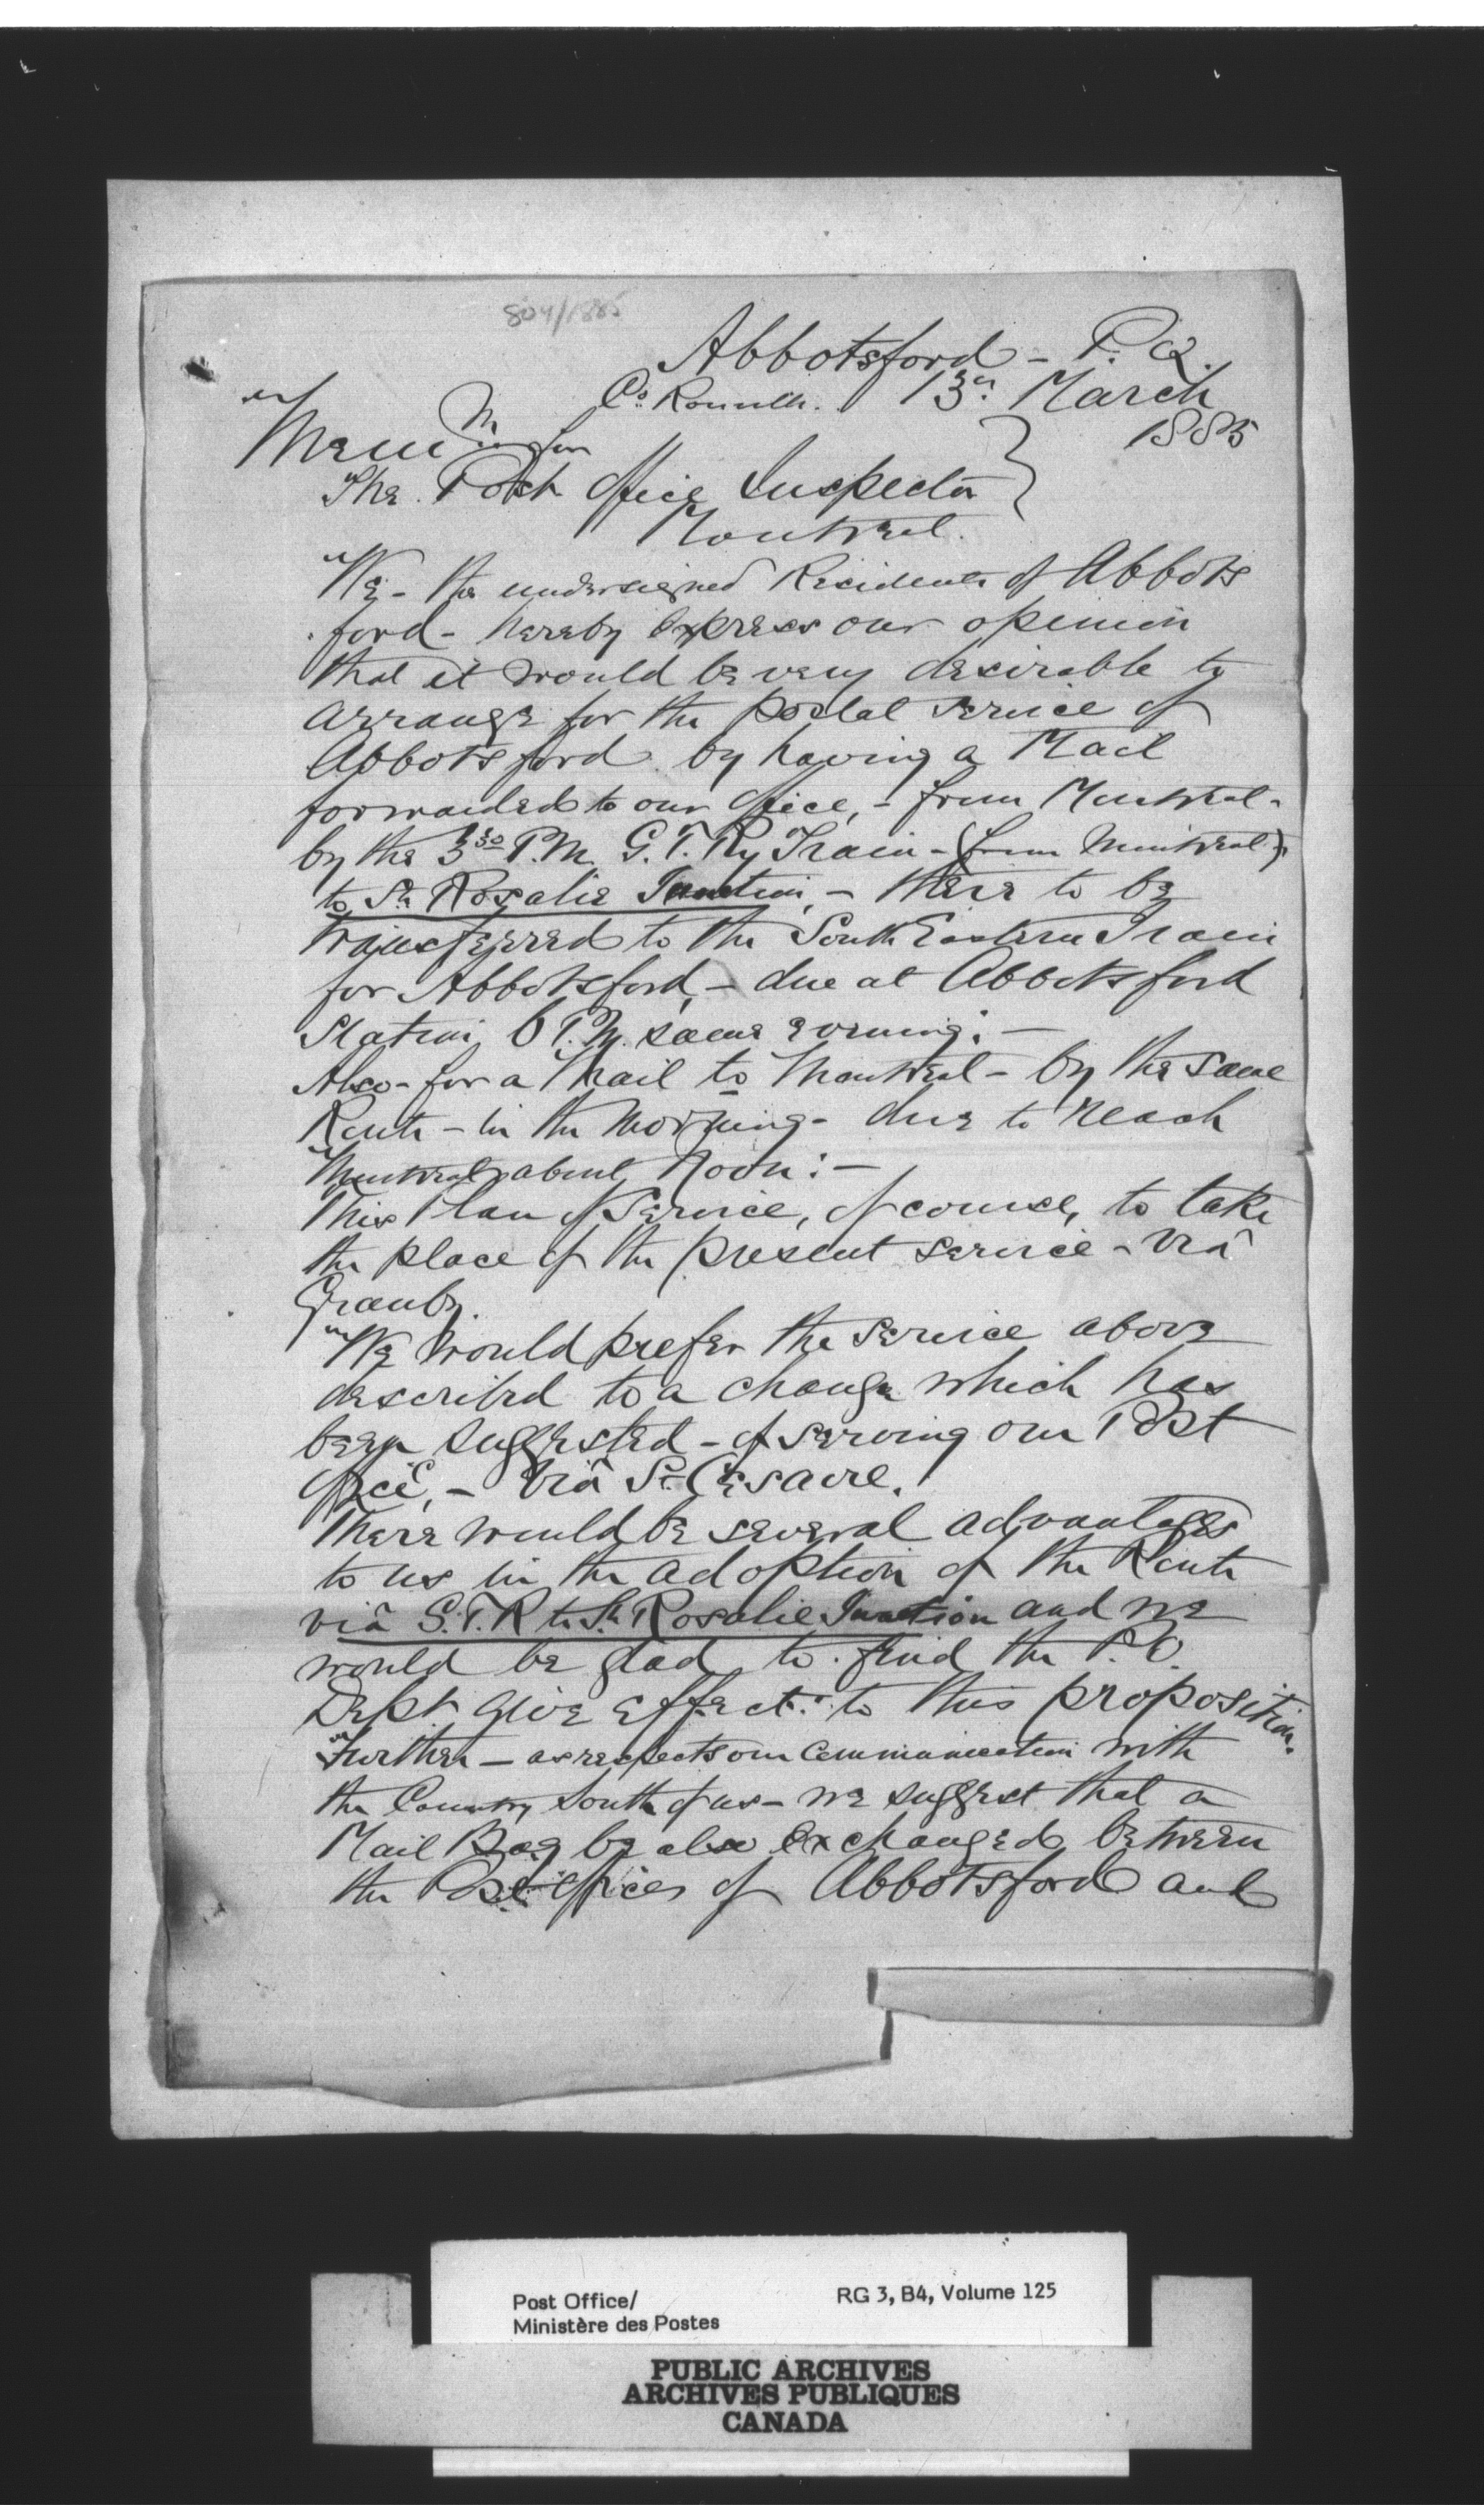 804/1885
Abbotsford - P.Q.
Co. Rouville. 13th March
1885
Mem for
The Post Office Inspector
Montreal.
We - the undersigned Residents of Abbots
ford - hereby express our opinion
that it would be very desirable to
arrange for the postal service of
Abbotsford by having a Mail
forwarded to our office, - from Montreal -
by the 3 30 P.M. G.T.Ry Train - (from Montreal)
to St. Rosalie Junction, - there to be
transferred to the South Eastern Train
for Abbotsford, - due at Abbotsford
Station 6 P.M. same evening: -
Also - for a Mail to Montreal - by the same
Route - in the Morning - due to reach
Montreal about Noon: -
This Plan of Service, of course, to take
the place of the present service - viâ
Granby.
We would prefer the service above
described to a change which has
been suggested - of serving our Post
Office, - viâ St. Cesaire.
There would be several advantages
to us in the adoption of the Route
viâ G.T.R to St. Rosalie Junction and we
would be glad to find the P.O.
Dept give effect to this proposition.
Further - as respects our communication with
the Country South of us - we suggest that a
Mail Bag be also exchanged between
the Post Offices of Abbotsford and
Post Office/
Ministère des Postes
RG 3, B4, Volume 125
PUBLIC ARCHIVES
ARCHIVES PUBLIQUES
CANADA